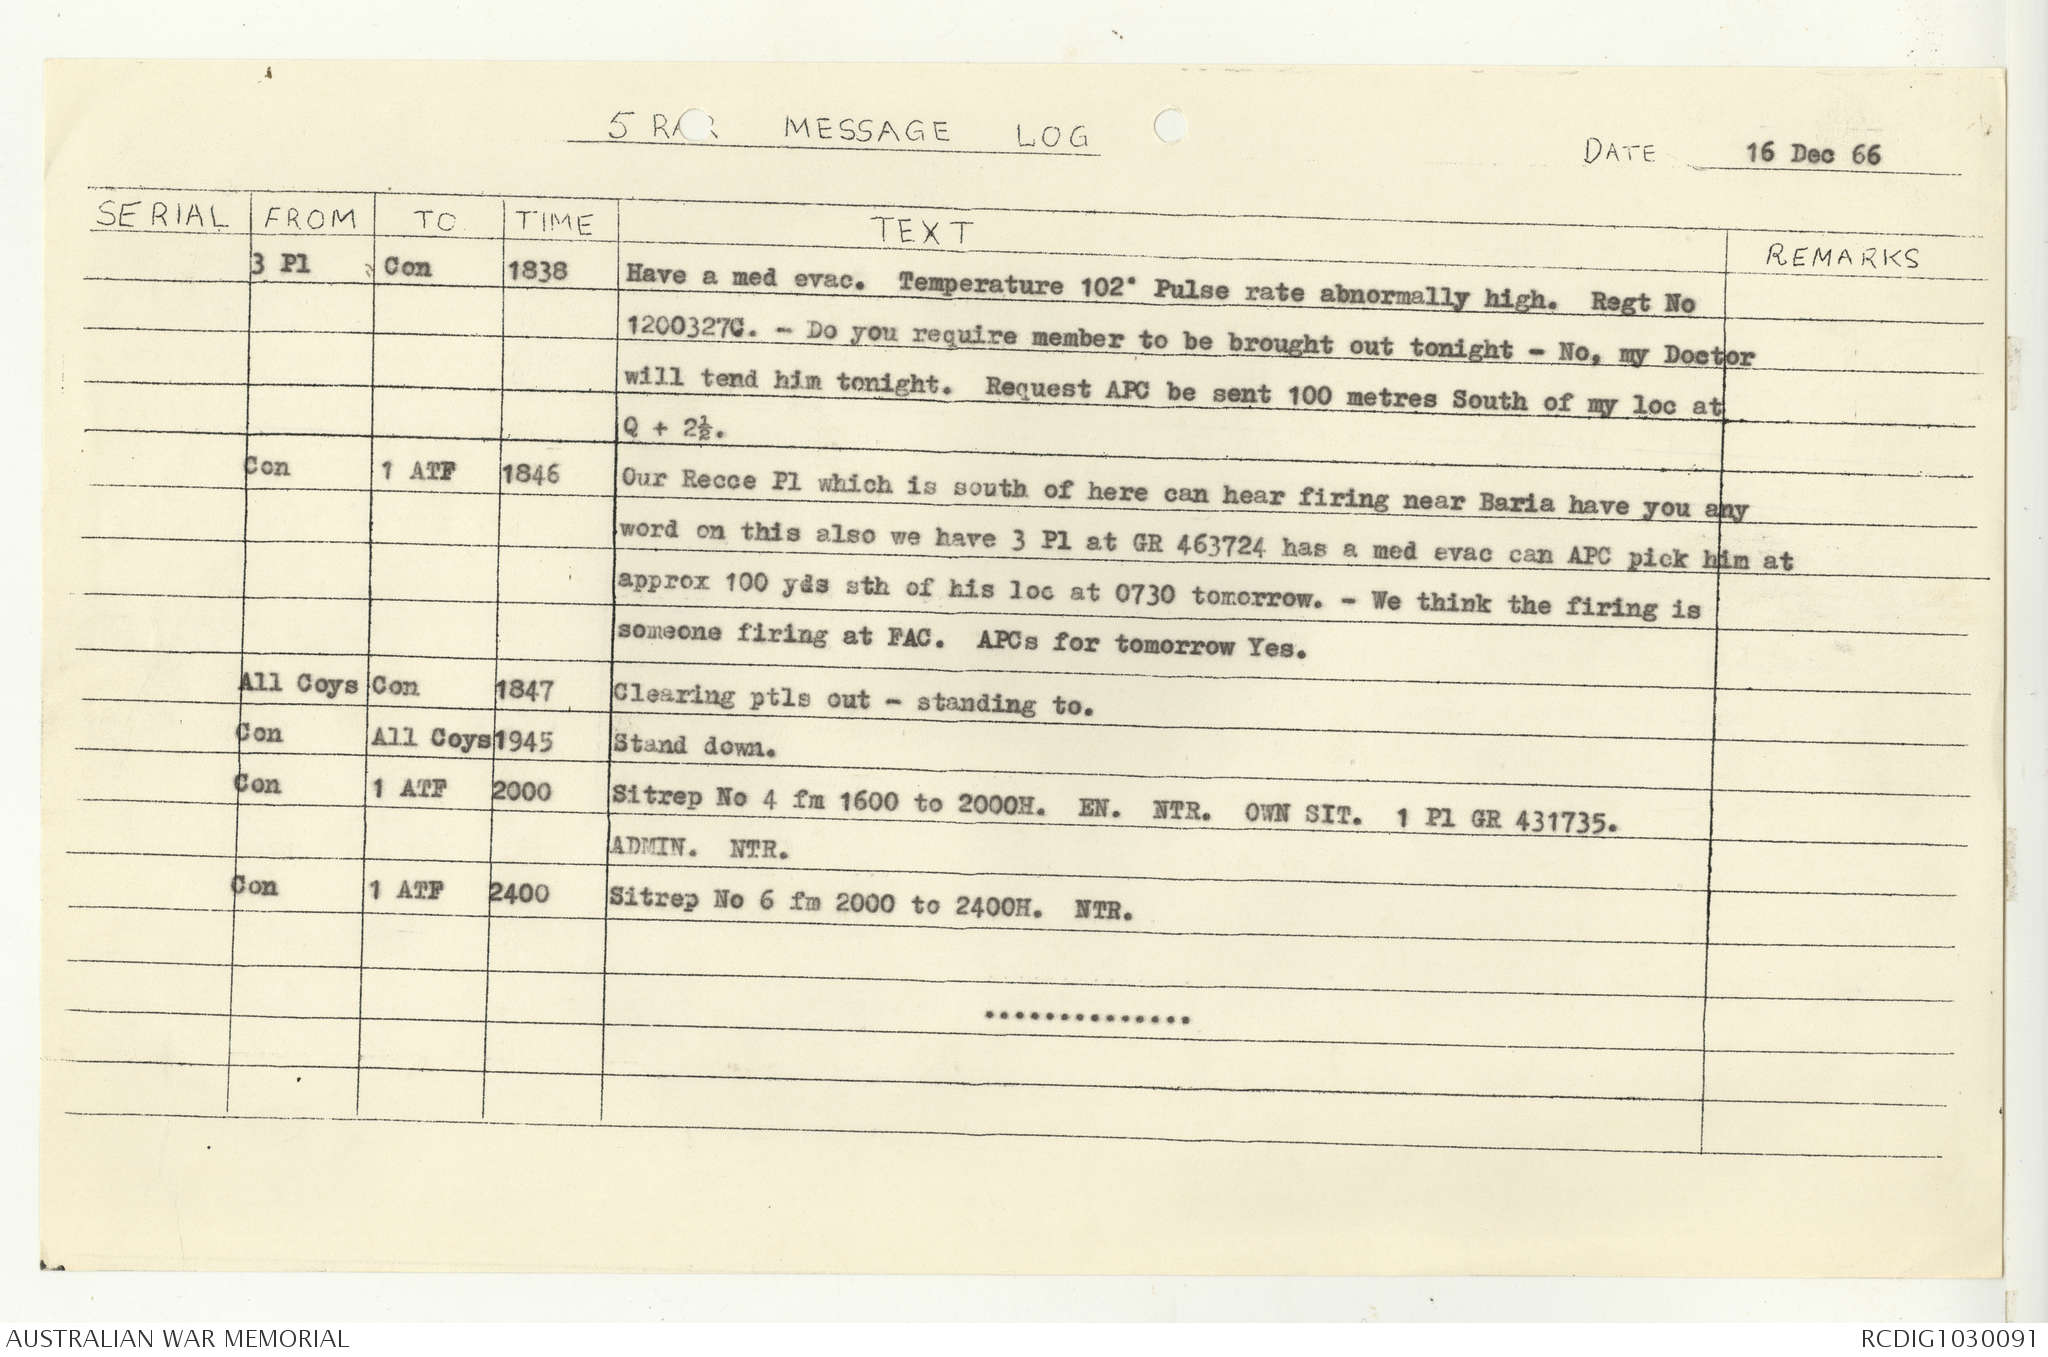 5 RAR MESSAGE LOG
DATE 16 Dec 66
SERIAL FROM TO TIME TEXT REMARKS
3 Pl Con 1838 Have a med evac. Temperature 102° Pulse rate abnormally high. Regt No
1200327C. - Do you require member to be brought out tonight - No, my Doctor
will tend him tonight. Request APC be sent 100 metres South of my loc at
Q + 2½.
Con 1 ATF 1846 Our Recce Pl which is south of here can hear firing near Baria have you any
word on this also we have 3 Pl at GR 463724 has a med evac can APC pick him at
approx 100 yds sth of his loc at 0730 tomorrow. - We think the firing is
someone firing at FAC. APCs for tomorrow Yes.
All Coys Con 1847 Clearing ptls out - standing to.
Con All Coys 1945 Stand down.
Con 1 ATF 2000 Sitrep No 4 fm 1600 to 2000H. EN. NTR. OWN SIT. 1 Pl GR 431735.
ADMIN. NTR.
Con 1 ATF 2400 Sitrep No 6 fm 2000 to 2400H. NTR.
..............
AUSTRALIAN WAR MEMORIAL RCDIG1030091